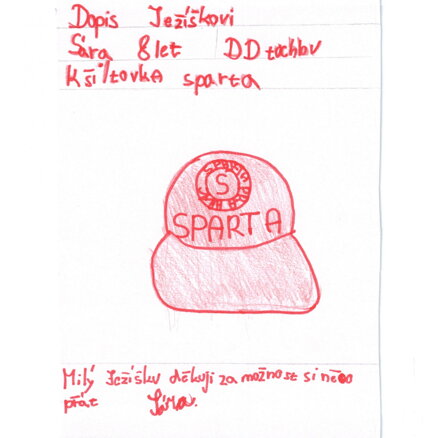 Dopis Ježíškovi
Sára 8 let DD tachov
Kšiltovka sparta
SPARTA PRAHA
S
SPARTA
Milý Ježíšku děkuji za možnost si něco
přát Sára.